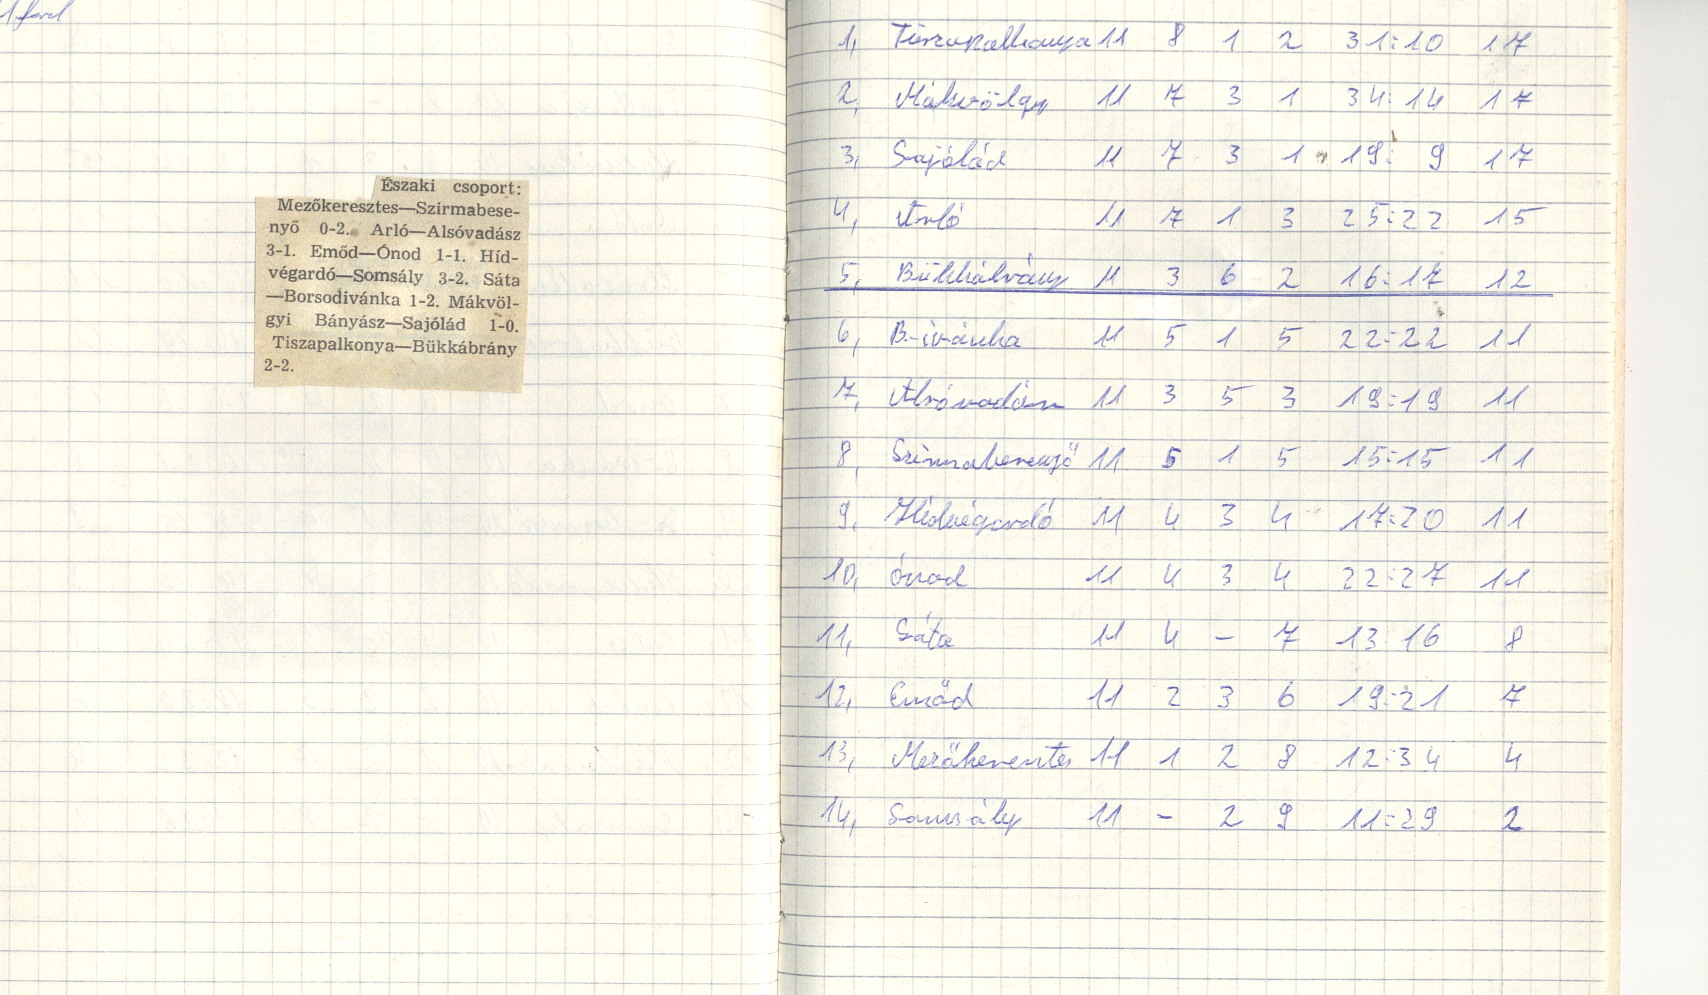 Északi csoport:
Mezőkeresztes—Szirmabese-
nyő 0-2. Arló—Alsóvadász
3-1. Emőd—Ónod 1-1. Híd-
végardó—Somsály 3-2. Sáta
—Borsodivánka 1-2. Mákvöl-
gyi Bányász—Sajólád 1-0.
Tiszapalkonya—Bükkábrány
2-2.
1, Tiszapalkonya 11 8 1 2 31:10 17
2, Mákvölgy 11 7 3 1 34:14 17
3, Sajólád 11 7 3 1 19:9 17
4, Arló 11 7 1 3 25:22 15
5, Bükkábrány 11 3 6 2 16:17 12
6, B.-ivánka 11 5 1 5 22:22 11
7, Alsóvadász 11 3 5 3 19:19 11
8, Szirmabesenyő 11 5 1 5 15:15 11
9, Hídvégardó 11 4 3 4 17:20 11
10, Ónod 11 4 3 4 22:27 11
11, Sáta 11 4 – 7 13:16 8
12, Emőd 11 2 3 6 19:21 7
13, Mezőkeresztes 11 1 2 8 12:34 4
14, Somsály 11 – 2 9 11:29 2